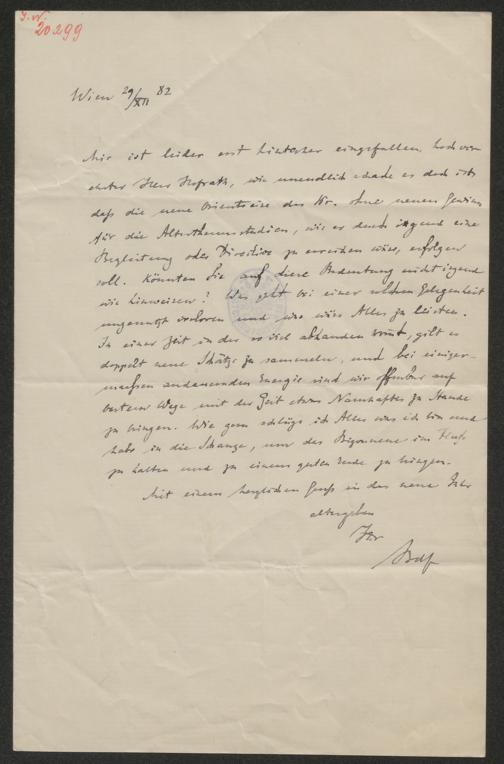 I.N.
20.299
Wien 29/XII 82
Mir ist leider erst hinterher eingefallen, hochver-
ehrter Herr Hofrath, wie unendlich schade es doch ist,
daß die neue Orientreise des Kr. ohne neuen Gewinn
für die Alterthumsstudien, wie er durch irgend eine
Begleitung oder Direktive zu erreichen wäre, erfolgen
soll. Könnten Sie auf diese Bedeutung nicht irgend
wie hinweisen? Was geht bei einer solchen Gelegenheit
ungenutzt verloren und was wäre Alles zu leisten.
In einer Zeit in der so viel abhanden kommt, gilt es
doppelt neue Schätze zu sammeln, und bei einiger-
maßen andauernder Energie sind wir offenbar auf
bestem Wege mit der Zeit etwas Namhaftes zu Stande
zu bringen. Wie gern schlüge ich Alles was ich bin und
habe in die Schanze, um das Begonnene im Fluß
zu halten und zu einem guten Ende zu bringen.
Mit einem herzlichen Gruß in das neue Jahr
altergeben
Ihr